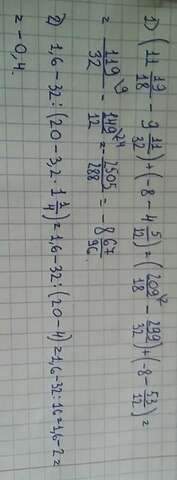 1) (11 19/18 - 9 11/32) + (-8 - 4 5/12) = (209/18 - 299/32) + (-8 - 53/12) =
= 119/32 - 149/12 = - 2505/288 = - 8 67/96
2) 1,6 - 32 : (20 - 3,2 · 1 1/4) = 1,6 - 32 : (20 - 4) = 1,6 - 32 : 16 = 1,6 - 2 =
= - 0,4.